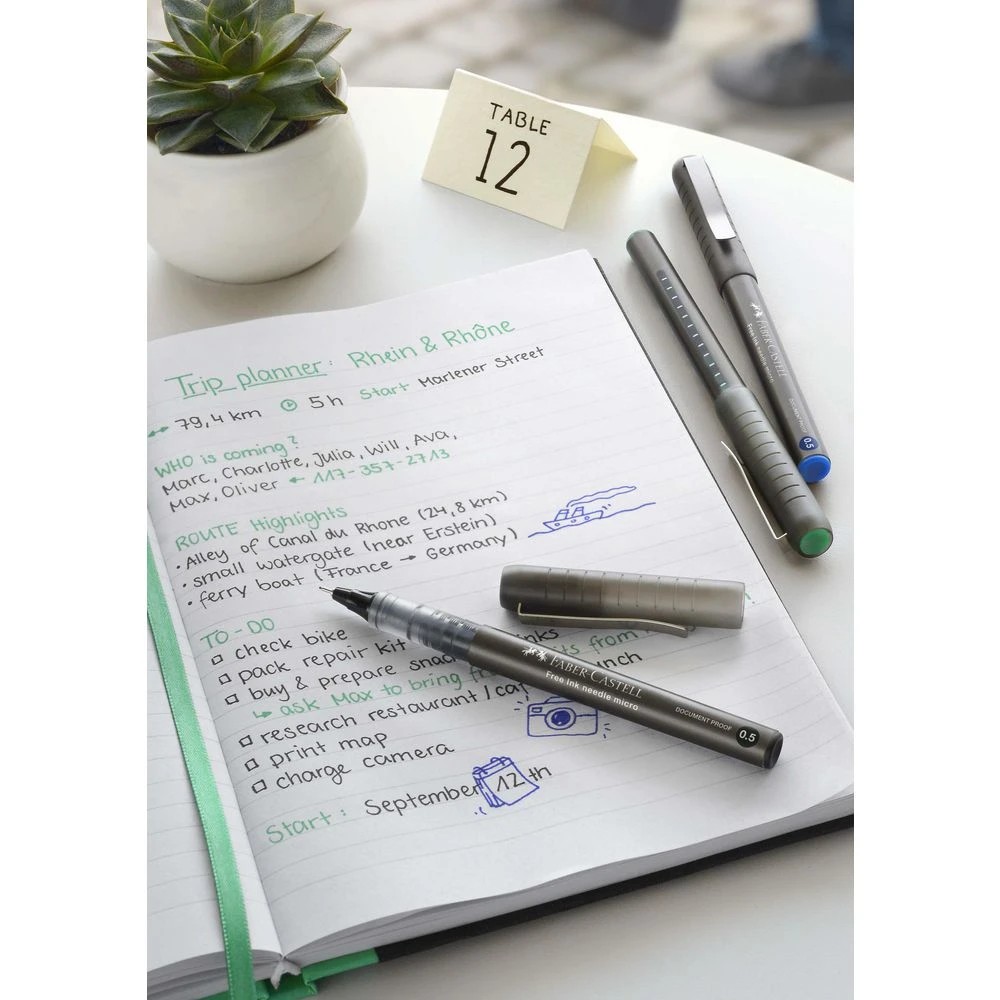 TABLE
12
Trip planner: Rhein & Rhône
79,4 km 5h Start Marlener Street
WHO is coming?
Marc, Charlotte, Julia, Will, Ava,
Max, Oliver ← 117-357-2713
ROUTE Highlights
• Alley of Canal du Rhone (24,8 km)
• small watergate (near Erstein)
• ferry boat (France → Germany)
TO-DO
check bike
pack repair kit
buy & prepare
↳ ask Max to bring from
research restaurant /
print map
charge camera
Start: September 12th
FABER-CASTELL
Free ink needle micro
DOCUMENT PROOF
0.5
FABER-CASTELL
Free ink needle micro
DOCUMENT PROOF
0.5